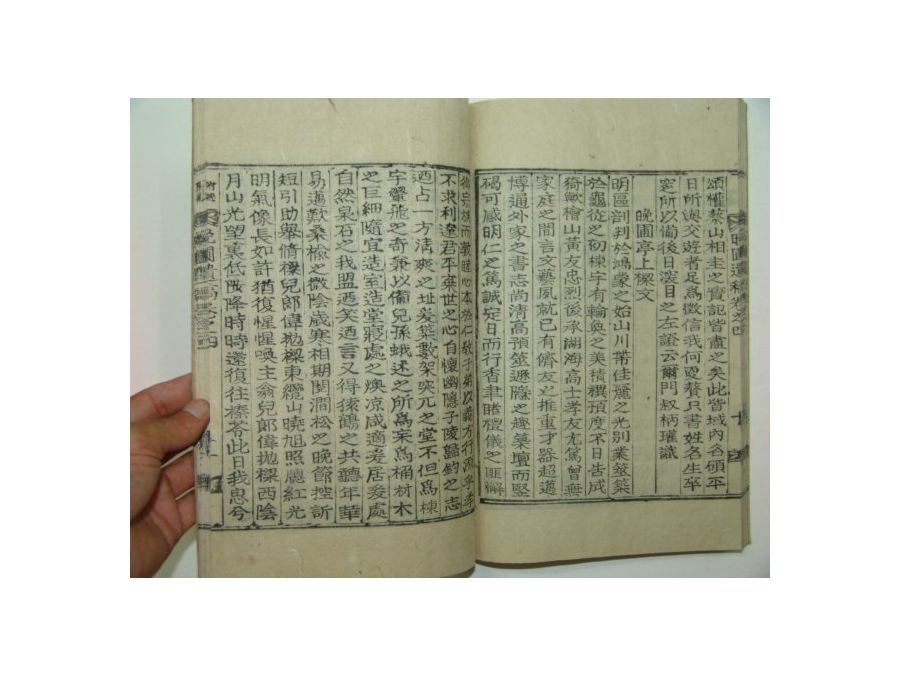 頌權蔡山相圭之實記皆盡之矣此皆域內名碩平
日所與交遊者足爲徵信我何更贅只書姓名生卒
窆所以備後日滾目之左證云爾門叔柄瓘識
晩圃亭上樑文
明區剖判於鴻蒙之始山川帶佳麗之光別業築
於龜從之韌棟宇有輪奐之美積禩預度不日告成
猗歟檜山黃友忠烈後承湖海高士孝友尤篤曾無
家庭之間言文藝夙就已有儕友之推重才器超邁
博通外家之書志尚清高預筮遯隱之趣築壇而竪
碣可感明仁之篤誠定日而行香聿睹禮儀之匪懈
不求利達君平棄世之心自懷幽隱子陵歸釣之志
迺占一方清爽之址爰築數架突兀之堂不但爲棟
宇翬飛之奇兼以備兒孫蛾述之所爲宎爲桷材木
之巨細隨宜造室造堂寢處之燠凉咸適爰居爰處
自然泉石之我盟迺笑迺言又得猿鶴之共聽年華
易邁歎桑楡之微陰歲寒相期閱澗松之晩節控訢
短引助擧脩樑兒郞偉抛樑東纜山曉旭照牕紅光
明氣像長如許猶復惺惺喚主翁兒郞偉抛樑西陰
月山光望裏低陟降時時還復往榛苓此日我思兮